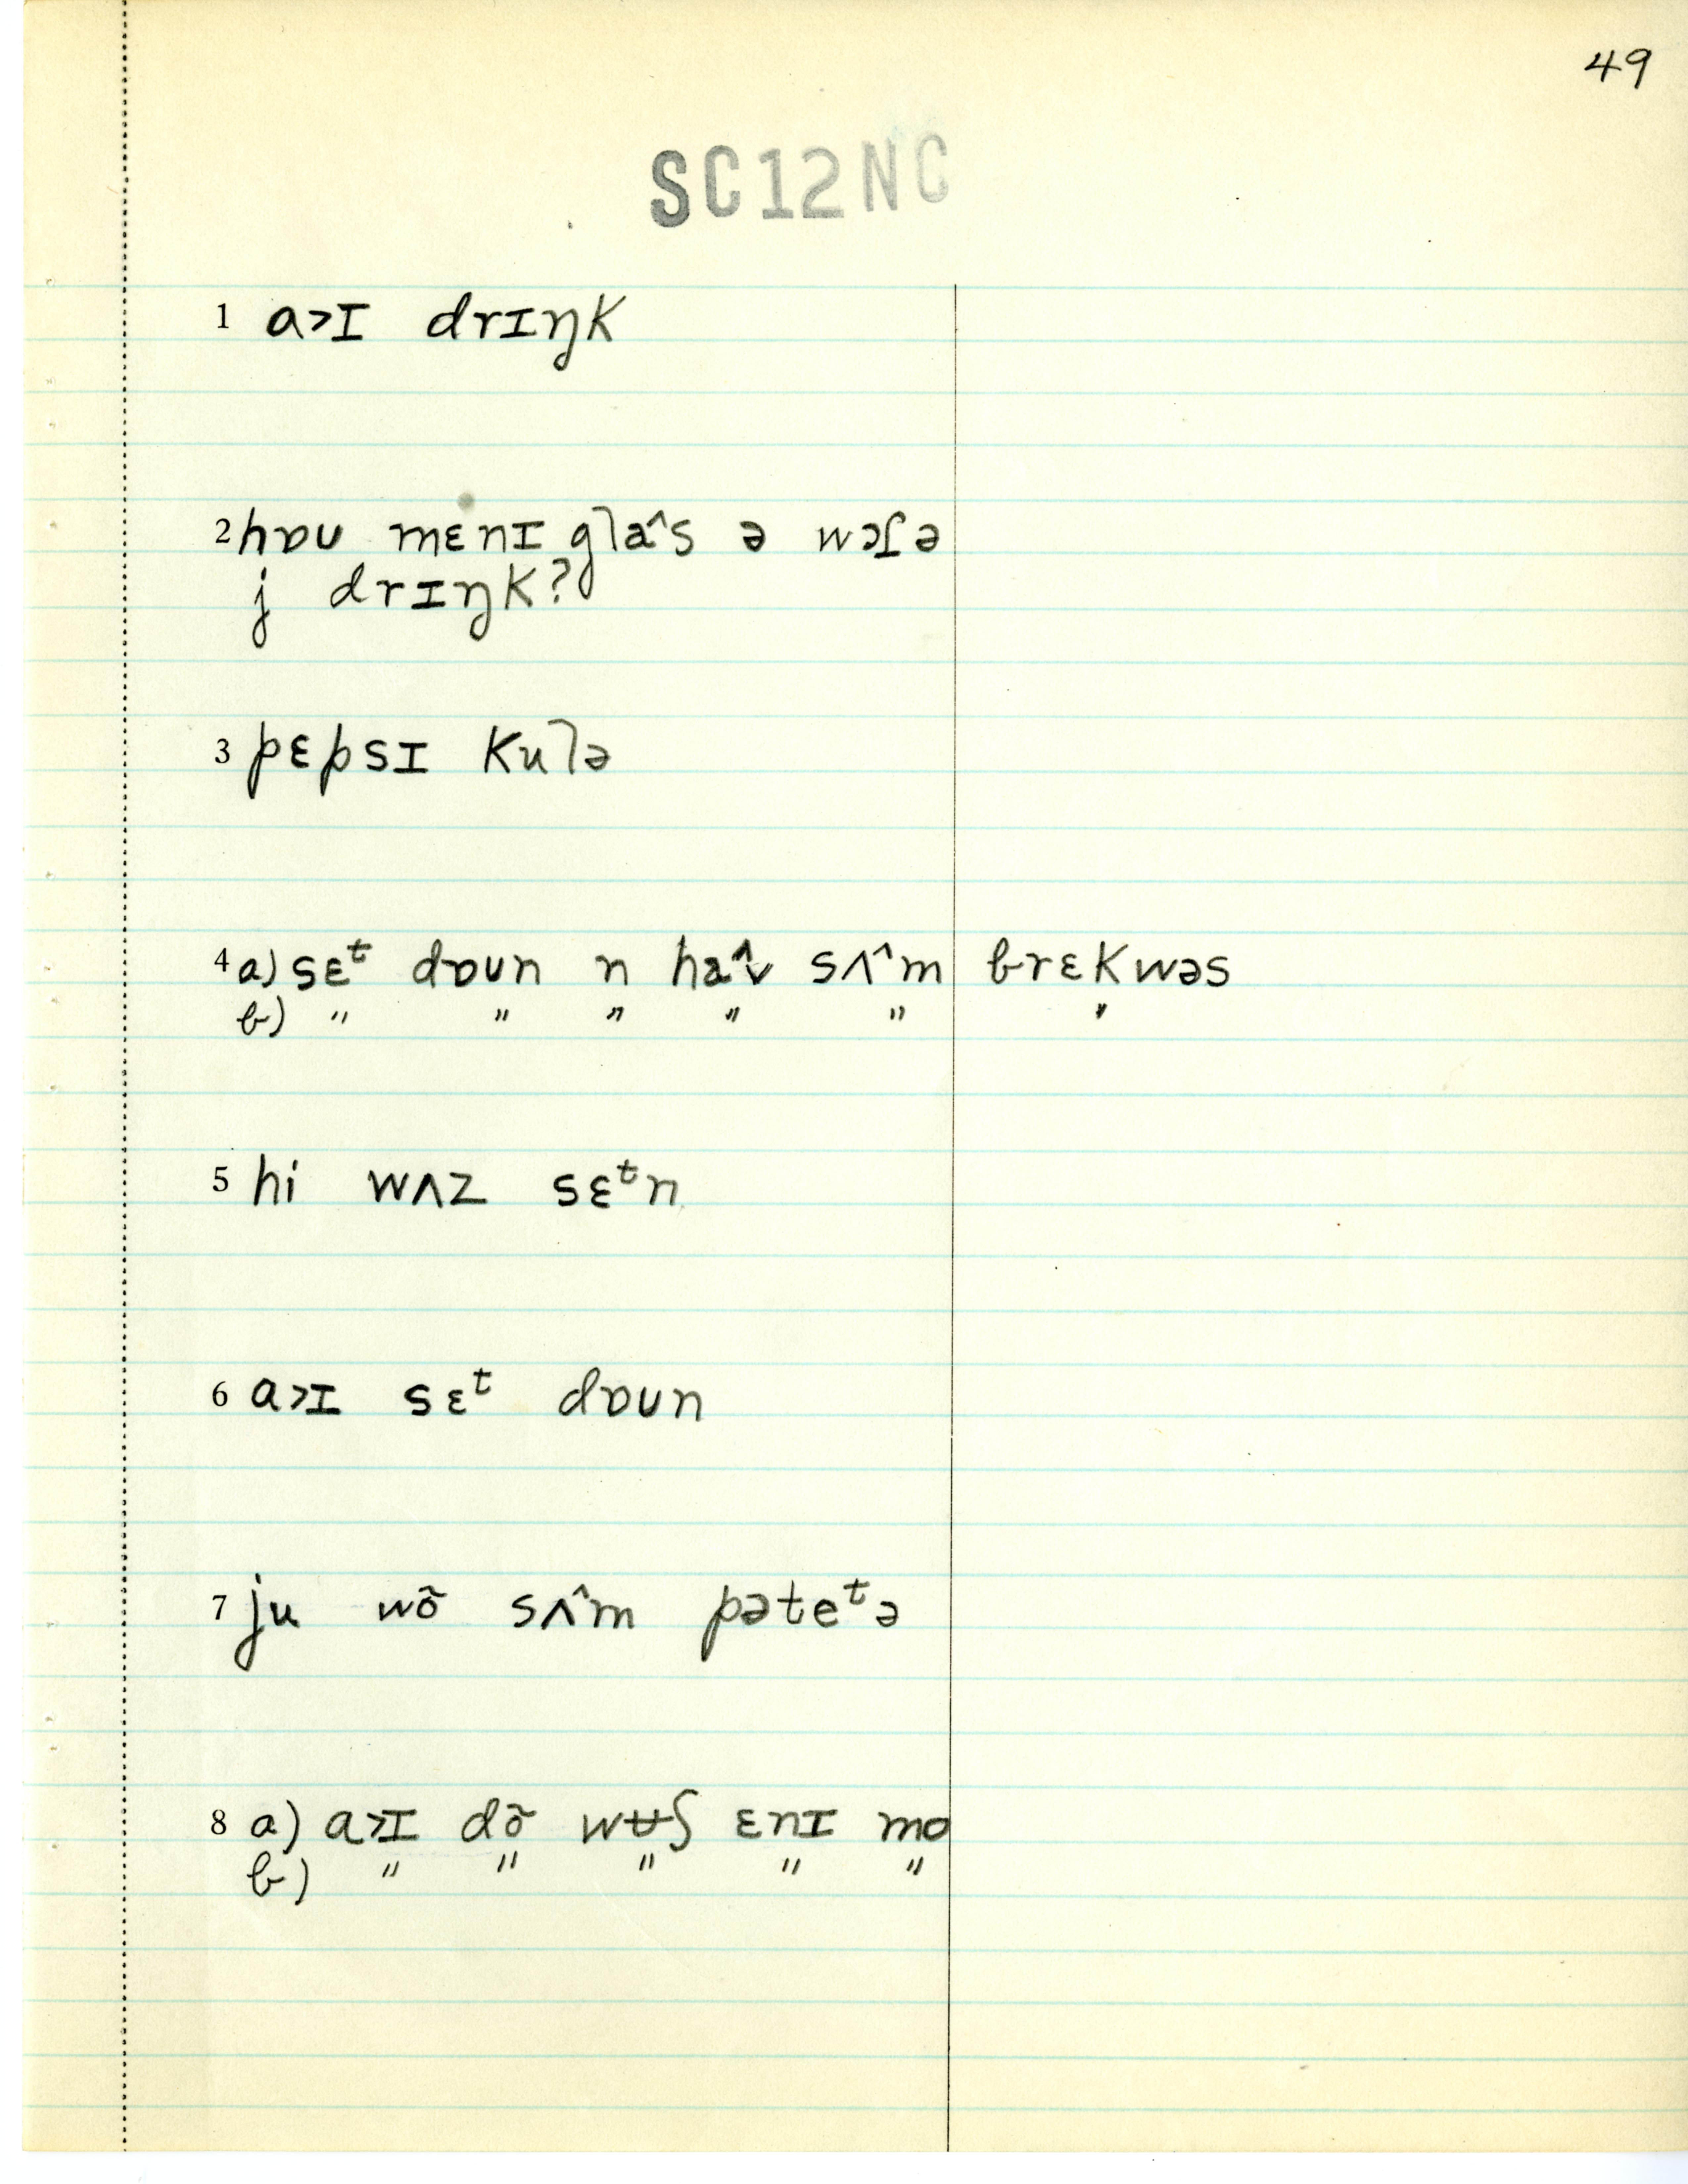 49
SC12NC
1 a>ɪ drɪŋk
2 hɒʊ mɛnɪ gla^s ə wɔɾə
j drɪŋk?
3 pɛpsɪ kulə
4 a) sɛᵗ dɒʊn n ha^v sʌ^m brɛkwəs
b) " " " " " "
5 hi wʌz sɛᵗn
6 a>ɪ sɛᵗ dɒʊn
7 ju wõ sʌ^m pəteᵗə
8 a) a>ɪ dõ wʉʃ ɛnɪ mo
b) " " " " "